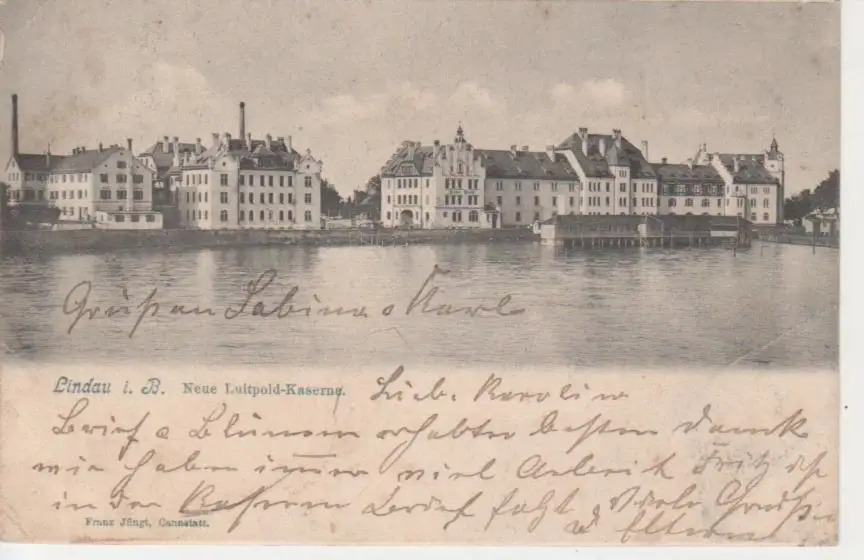 Grüßen Sabina & Karl
Lindau i. B. Neue Luitpold-Kaserne.
Lieb. Karolin
Brief & Blumen erhalten besten Dank
wir haben immer viel Arbeit Fritz ist
in der Kasern Brief folgt Viele Grüße
Eltern
Franz Jüngt, Cannstatt.